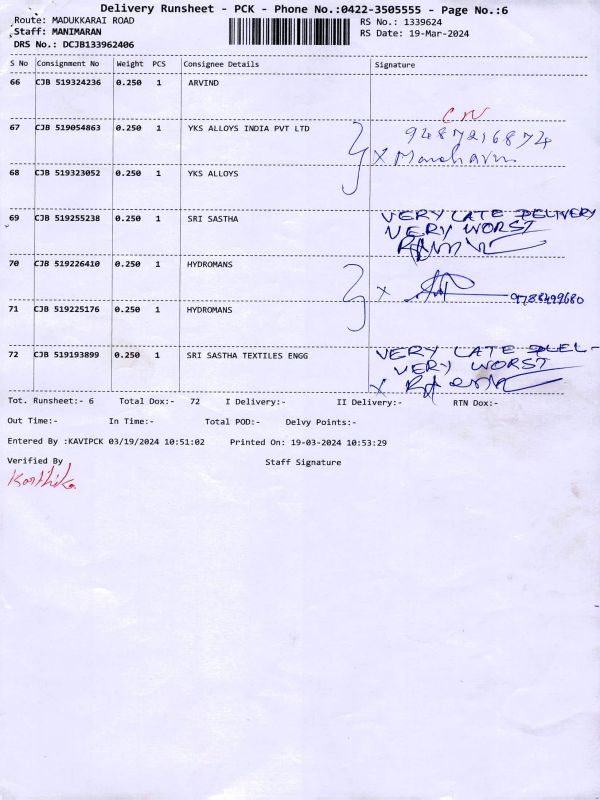 Delivery Runsheet - PCK - Phone No.:0422-3505555 - Page No.:6
Route: MADUKKARAI ROAD
RS No.: 1339624
Staff: MANIMARAN
RS Date: 19-Mar-2024
DRS No.: DCJB133962406
S No Consignment No Weight PCS Consignee Details Signature
66 CJB 519324236 0.250 1 ARVIND
67 CJB 519054863 0.250 1 YKS ALLOYS INDIA PVT LTD
X Manoharan
68 CJB 519323052 0.250 1 YKS ALLOYS
69 CJB 519255238 0.250 1 SRI SASTHA VERY LATE DELIVERY
VERY WORST
70 CJB 519226410 0.250 1 HYDROMANS
X 9788499680
71 CJB 519225176 0.250 1 HYDROMANS
72 CJB 519193899 0.250 1 SRI SASTHA TEXTILES ENGG VERY LATE DEL-
VERY WORST
X
Tot. Runsheet:- 6 Total Dox:- 72 I Delivery:- II Delivery:- RTN Dox:-
Out Time:- In Time:- Total POD:- Delvy Points:-
Entered By :KAVIPCK 03/19/2024 10:51:02 Printed On: 19-03-2024 10:53:29
Verified By Staff Signature
Karthika